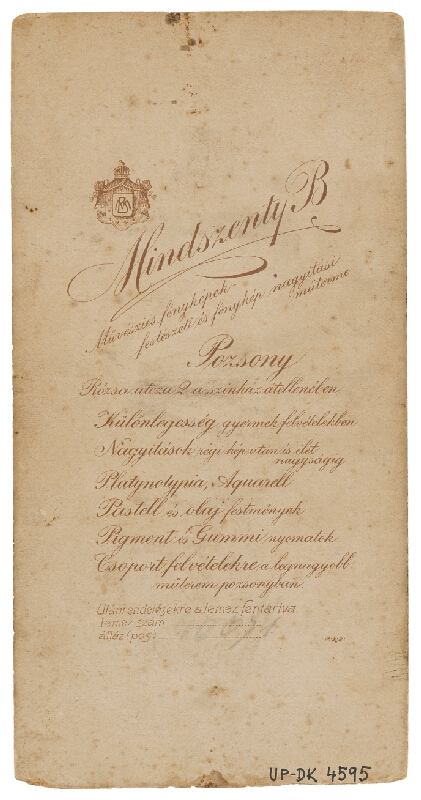 Mindszenty B
Művészies fényképek
festészeti és fénykép nagyítási
műterme
Pozsony
Rózsa utcza 2 a színház átellenében
Különlegesség gyermek felvételekben
Nagyítások régi kép után is élet
nagyságig
Platynotypia, Aquarell
Pastell és olaj festmények
Pigment és Gummi nyomatok
Csoport felvételekre a legnagyobb
műterem pozsonyban.
Utánrendelésekre a lemez fentartva
lemez szám
UP-DK 4595